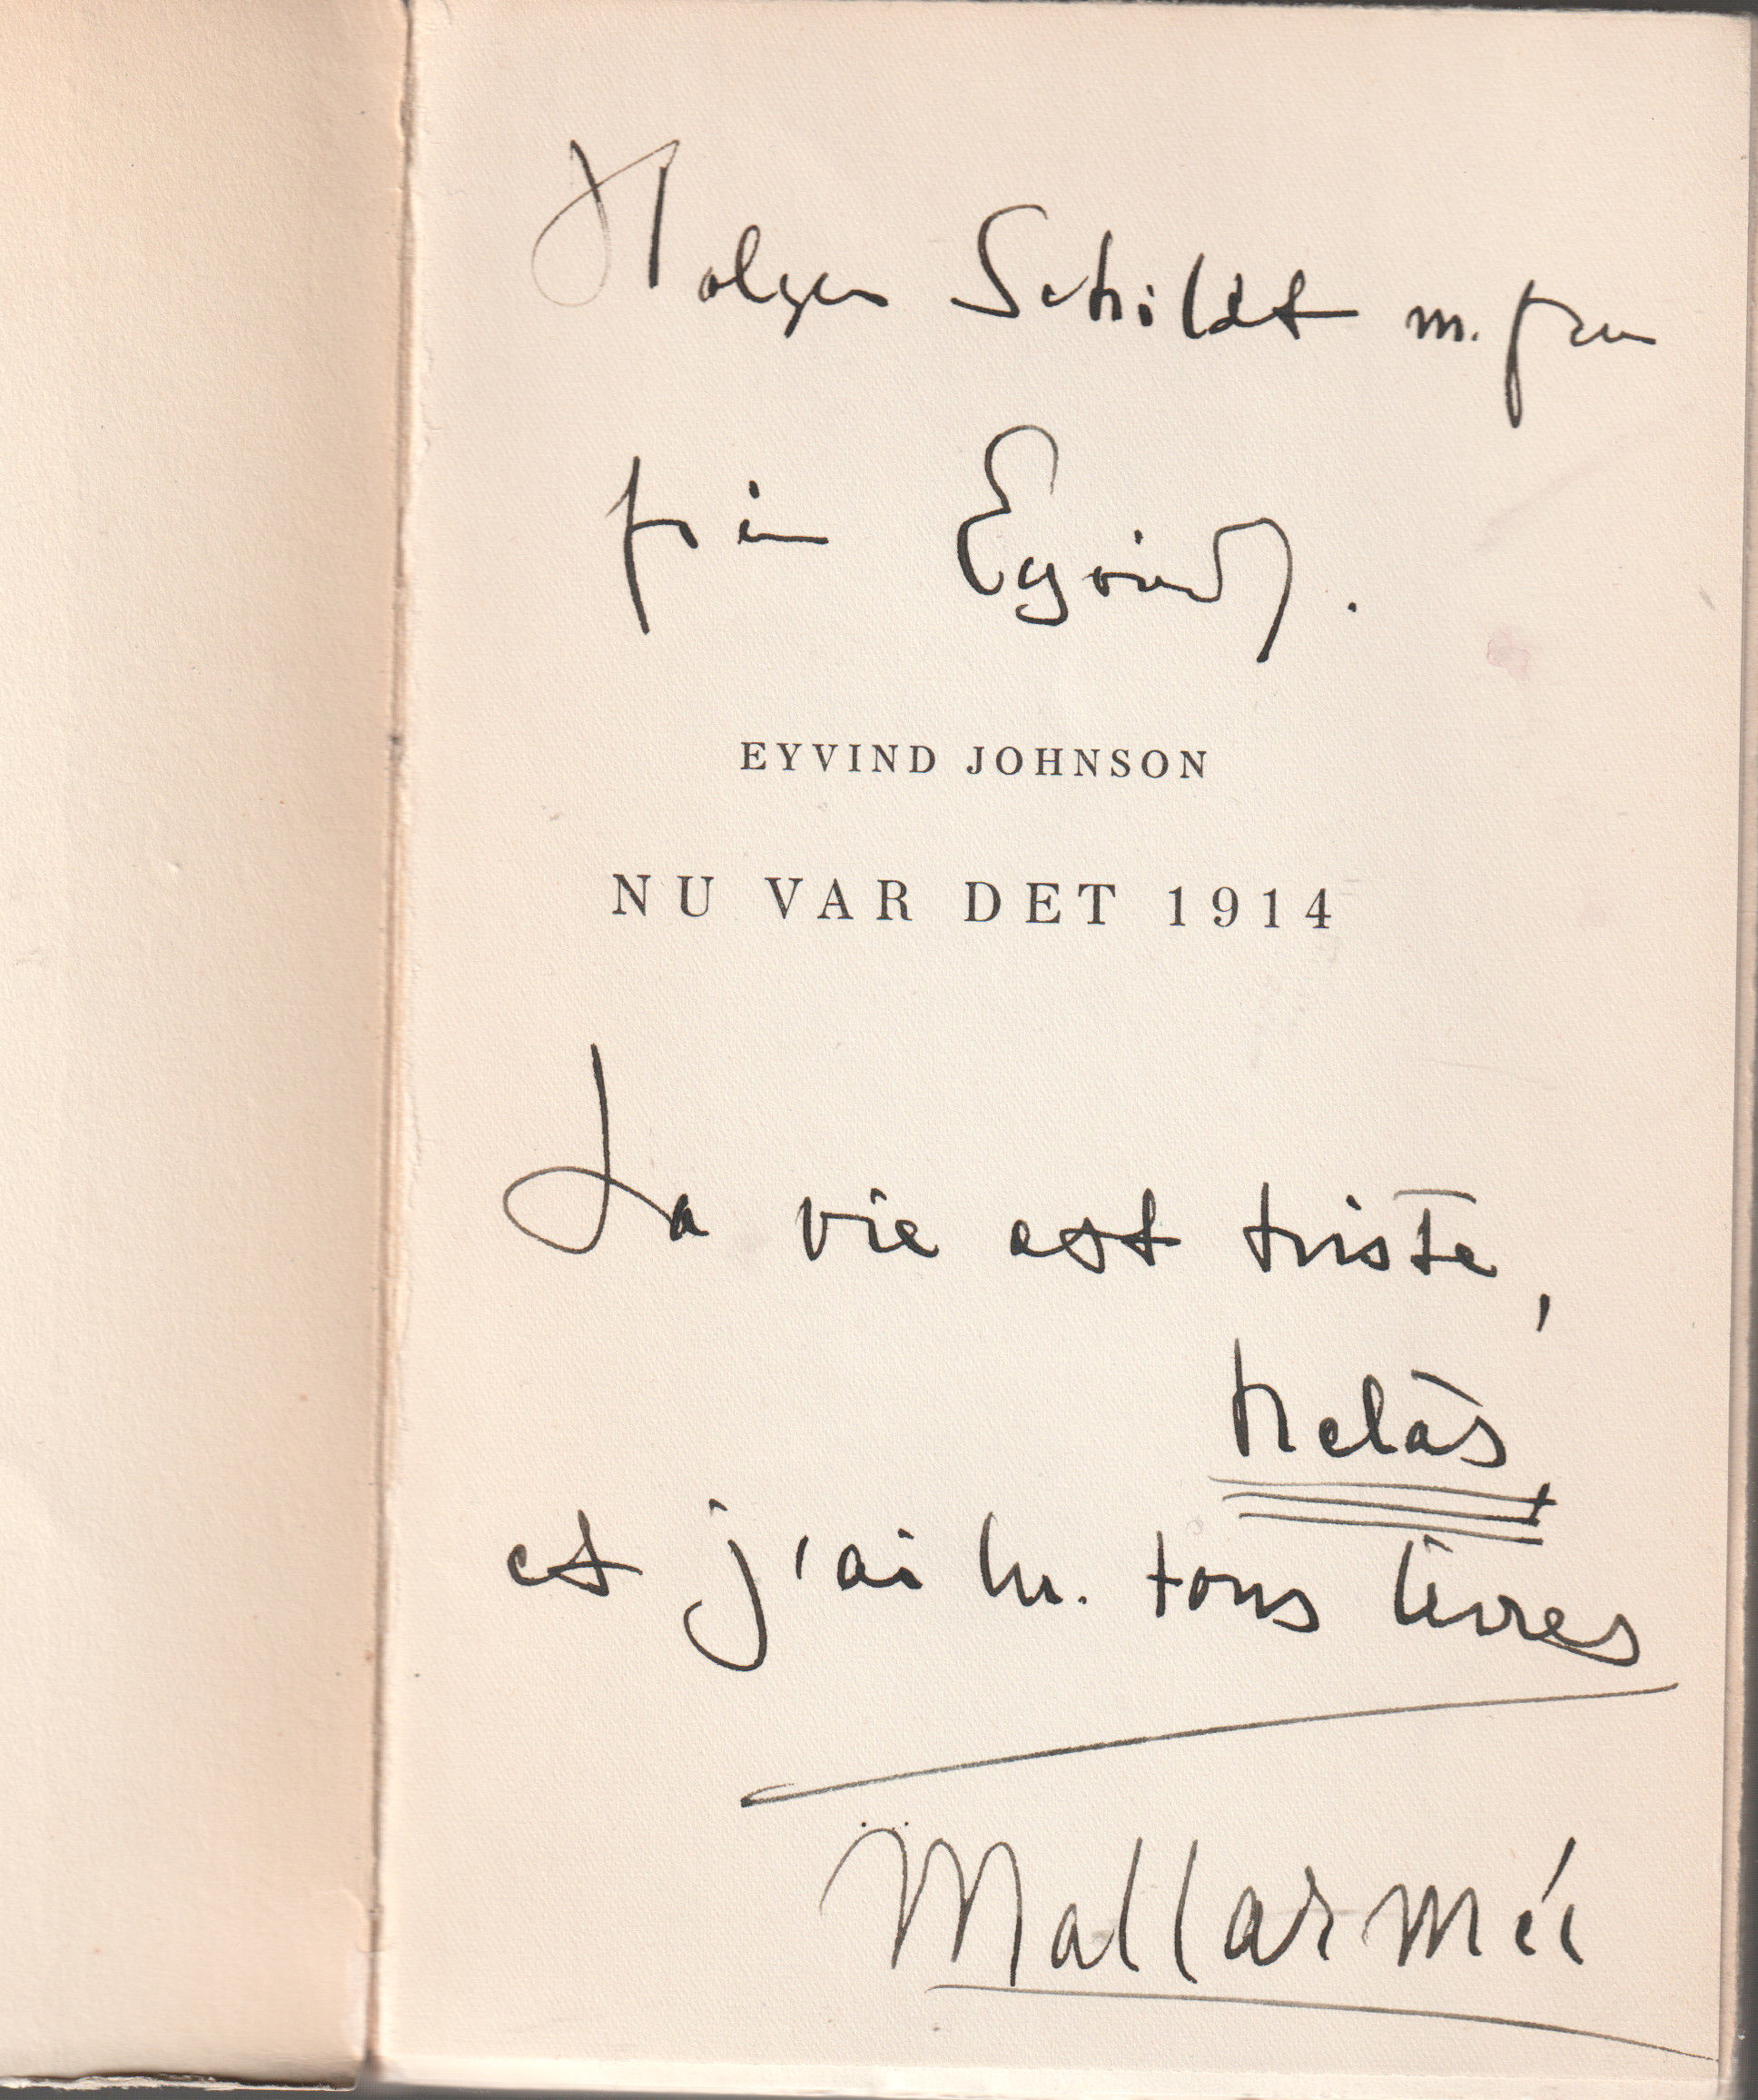 Holger Schildt m. fru
från Eyvind.
EYVIND JOHNSON
NU VAR DET 1914
La vie est triste,
helàs,
et j'ai lu. tous livres
Mallarmée